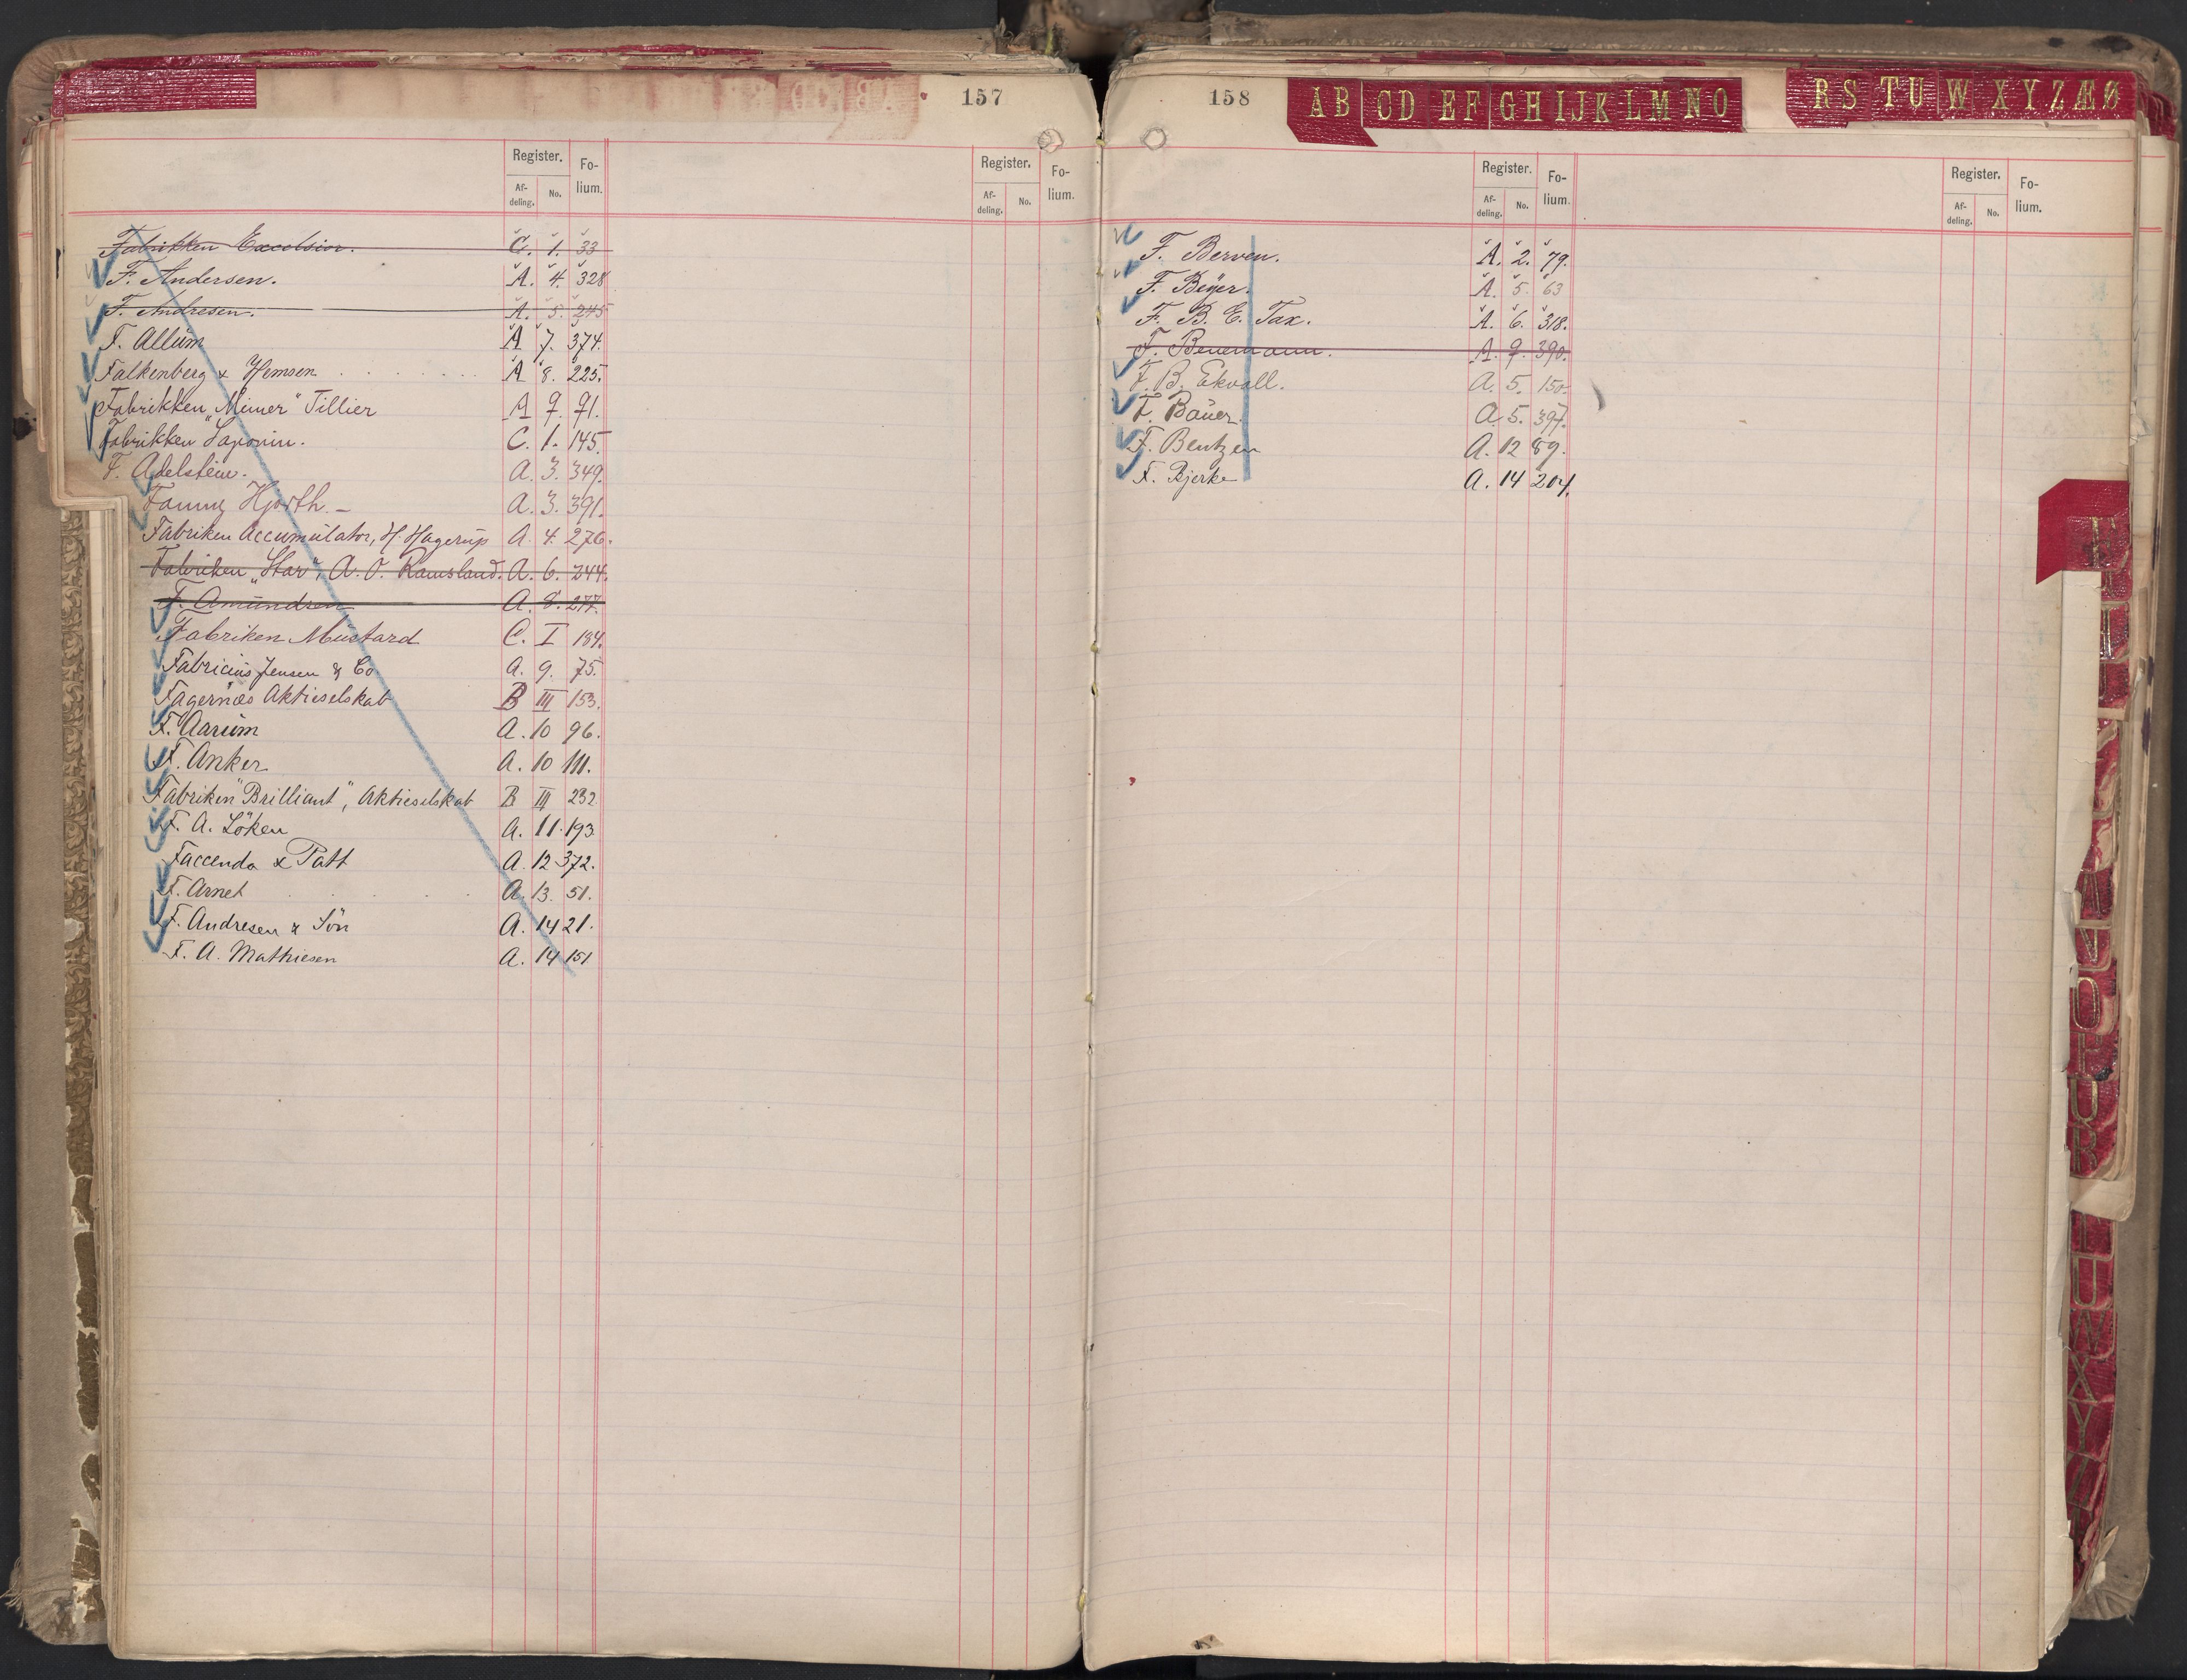 157
Register. Fo-
lium.
Af-
deling. No.
Register. Fo-
lium.
Af-
deling. No.
Fabrikken Excelsior. C. 1. 33
F. Andersen. A. 4. 328
F. Andresen. A. 5. 245
F. Allum A 7. 374.
Falkenberg & Hemsen A 8. 225.
Fabrikken „Mimer" Tillier A 9. 91.
Fabrikken Saponin. C. 1. 145.
F. Adelsteen. A. 3. 349.
Fanny Hjorth. – A. 3. 391.
Fabriken Accumulator, H. Hagerup A. 4. 276.
Fabriken „Star", A. O. Ramsland. A. 6. 244.
F. Amundsen A. 8. 277.
Fabriken Mustard C. I 184.
Fabricius Jensen & Co A. 9. 75.
Fagernæs Aktieselskab B III 153.
F. Aarum A. 10 96.
F. Anker A. 10 111.
Fabriken "Brilliant", Aktieselskab B III 232
F. A. Löken A. 11. 193
Faccenda & Patt A. 12 372.
F. Arnet A. 13. 51.
F. Andresen & Sön A. 14 21.
F. A. Mathiesen A. 14 151
158
AB CD EF GH IJK LM NO RS TU W X Y Z Æ Ø
Register. Fo-
lium.
Af-
deling. No.
Register. Fo-
lium.
Af-
deling. No.
F. Berven. A. 2. 79.
F. Beyer. A. 5. 63
F. B. E. Tax. A. 6. 318.
F. Benemann. A. 9. 390.
F. B. Ekvall. A. 5. 150.
F. Bauer. A. 5. 397.
F. Bentzen A. 12 89.
F. Bjerke A. 14 204.
F